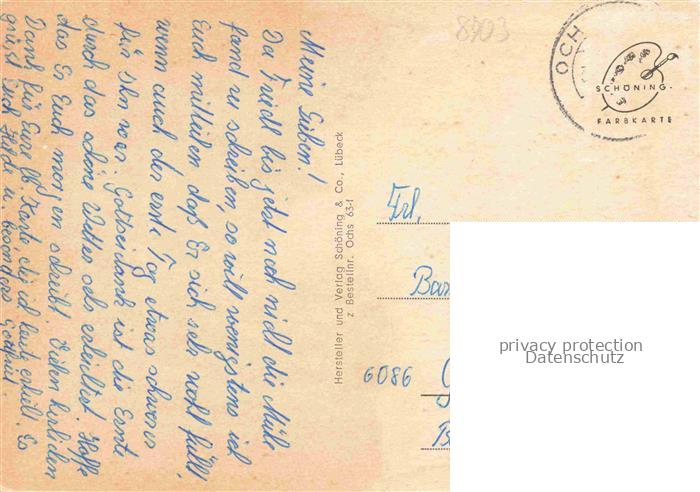 Meine Lieben!
Da Friedl bis jetzt noch nicht die Muße
fand zu schreiben, so will wenigstens ich
Euch mitteilen daß Er sich sehr wohl fühlt,
wenn auch der erste Tag etwas schwer
für Ihn war. Gottseidank ist die Ernte
durch das schöne Wetter sehr erleichtert. Hoffe
das Er Euch morgen schreibt. Vielen herzlichen
Dank für Eure lb. Karte, die ich heute erhielt. Es
grüsst Euch Friede u. besonders
Hersteller und Verlag Schöning & Co., Lübeck
z Bestellnr. Ochs 63-1
8703
OCH
SCHÖNING
FARBKARTE
Frl.
6086
privacy protection
Datenschutz